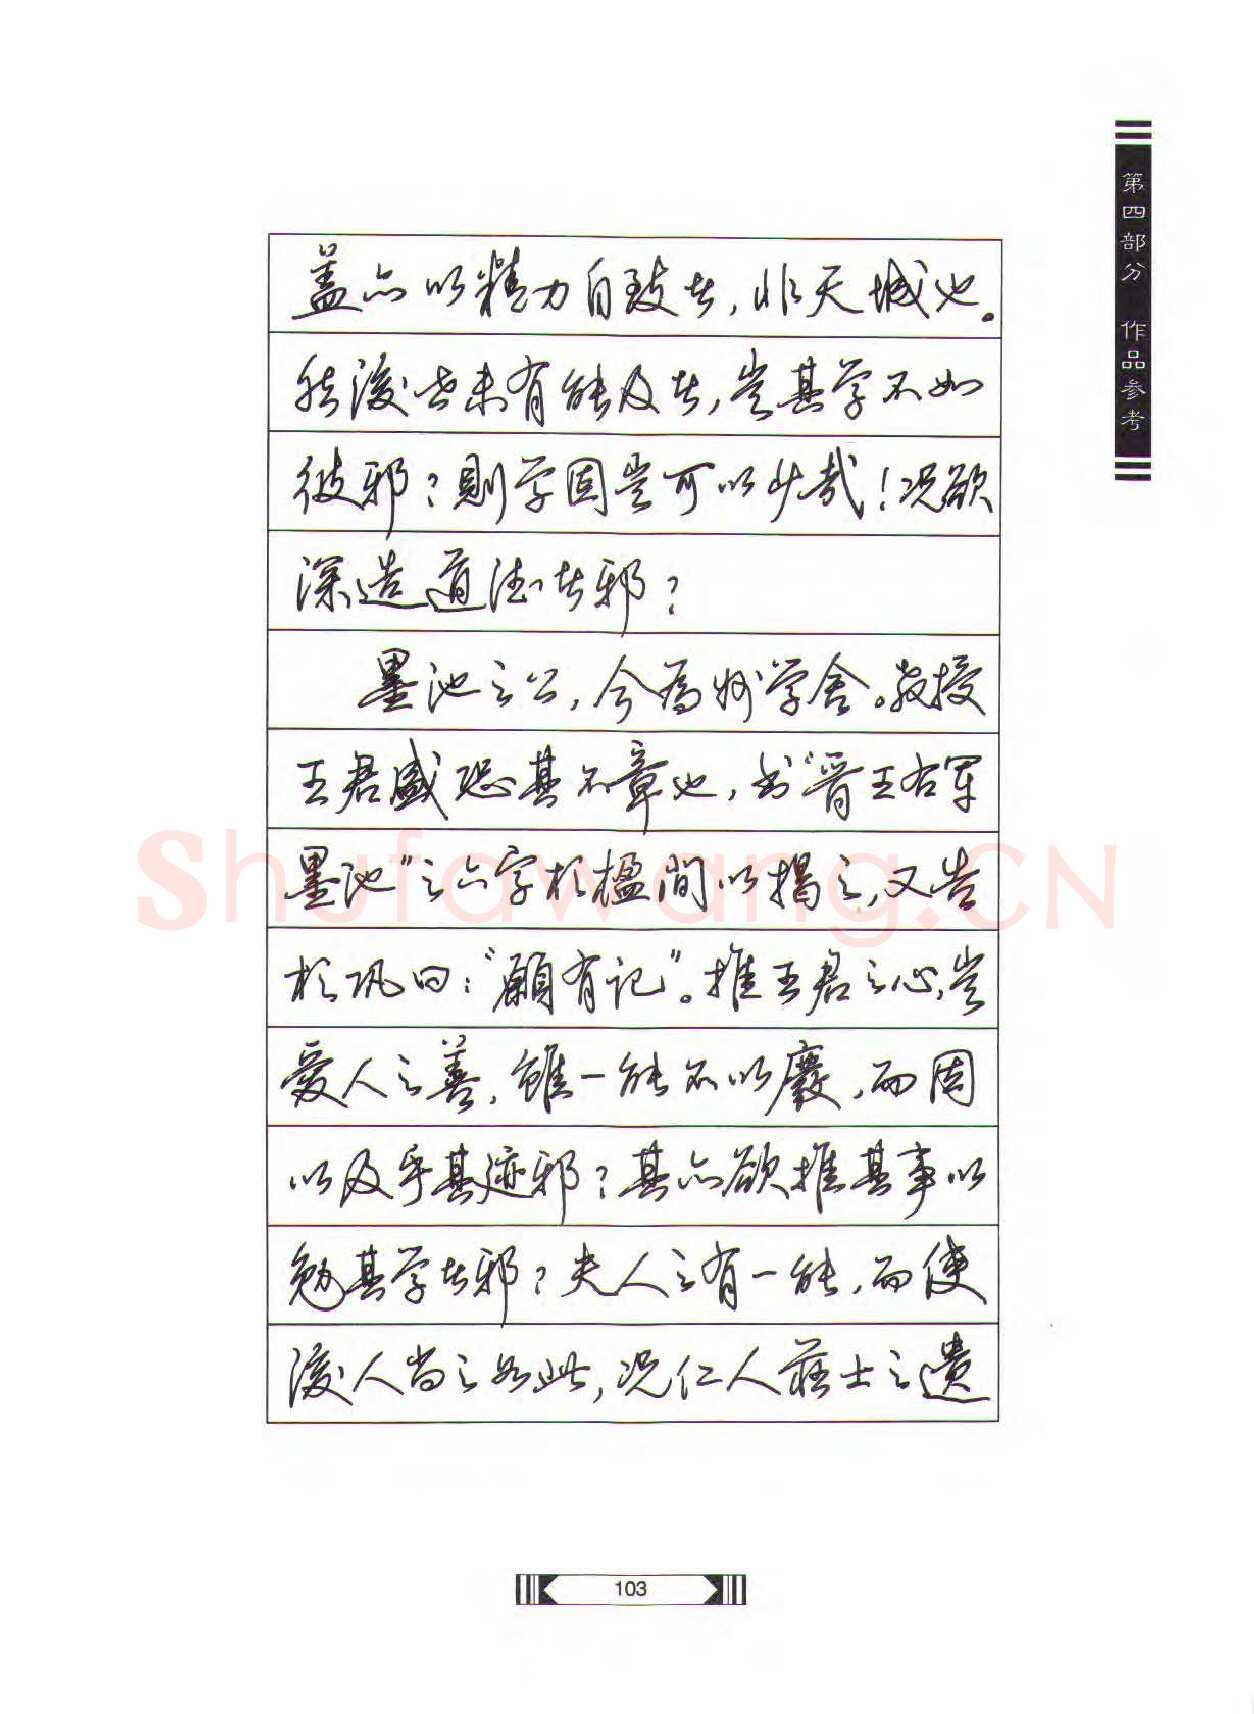 第四部分 作品参考
盖亦以精力自致者，非天城也。
然後世未有能及者，岂其学不如
彼邪？则学固岂可以少哉！况欲
深造道德者邪？
墨池之公，今為州学舍。教授
王君盛恐其不章也，书“晋王右军
墨池”之六字於楹間以揭之，又告
於巩曰：“願有记”。推王君之心，岂
爱人之善，雖一能不以廢，而因
以及乎其迹邪？其亦欲推其事以
勉其学者邪？夫人之有一能，而使
後人尚之如此，况仁人莊士之遺
103
Shufawang.CN